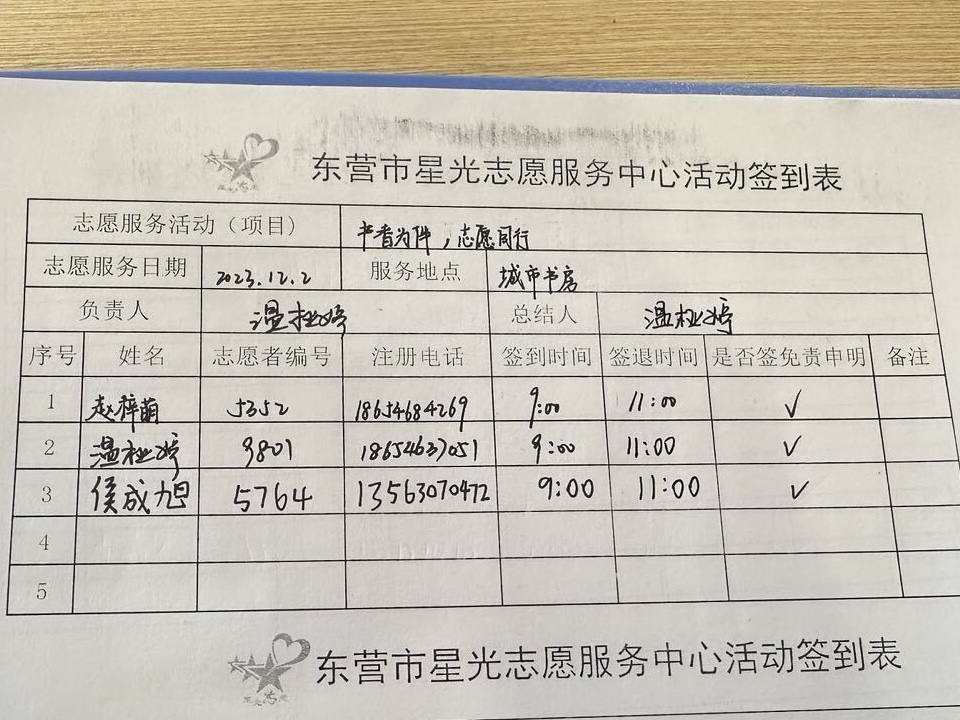 东营市星光志愿服务中心活动签到表
志愿服务活动（项目） 书香为伴，志愿同行
志愿服务日期 2023.12.2 服务地点 城市书房
负责人 温桂婷 总结人 温桂婷
序号 姓名 志愿者编号 注册电话 签到时间 签退时间 是否签免责申明 备注
1 赵梓萌 5352 18654684269 9:00 11:00 ✓
2 温桂婷 9801 18654637051 9:00 11:00 ✓
3 侯成旭 5764 13563070472 9:00 11:00 ✓
4
5
东营市星光志愿服务中心活动签到表